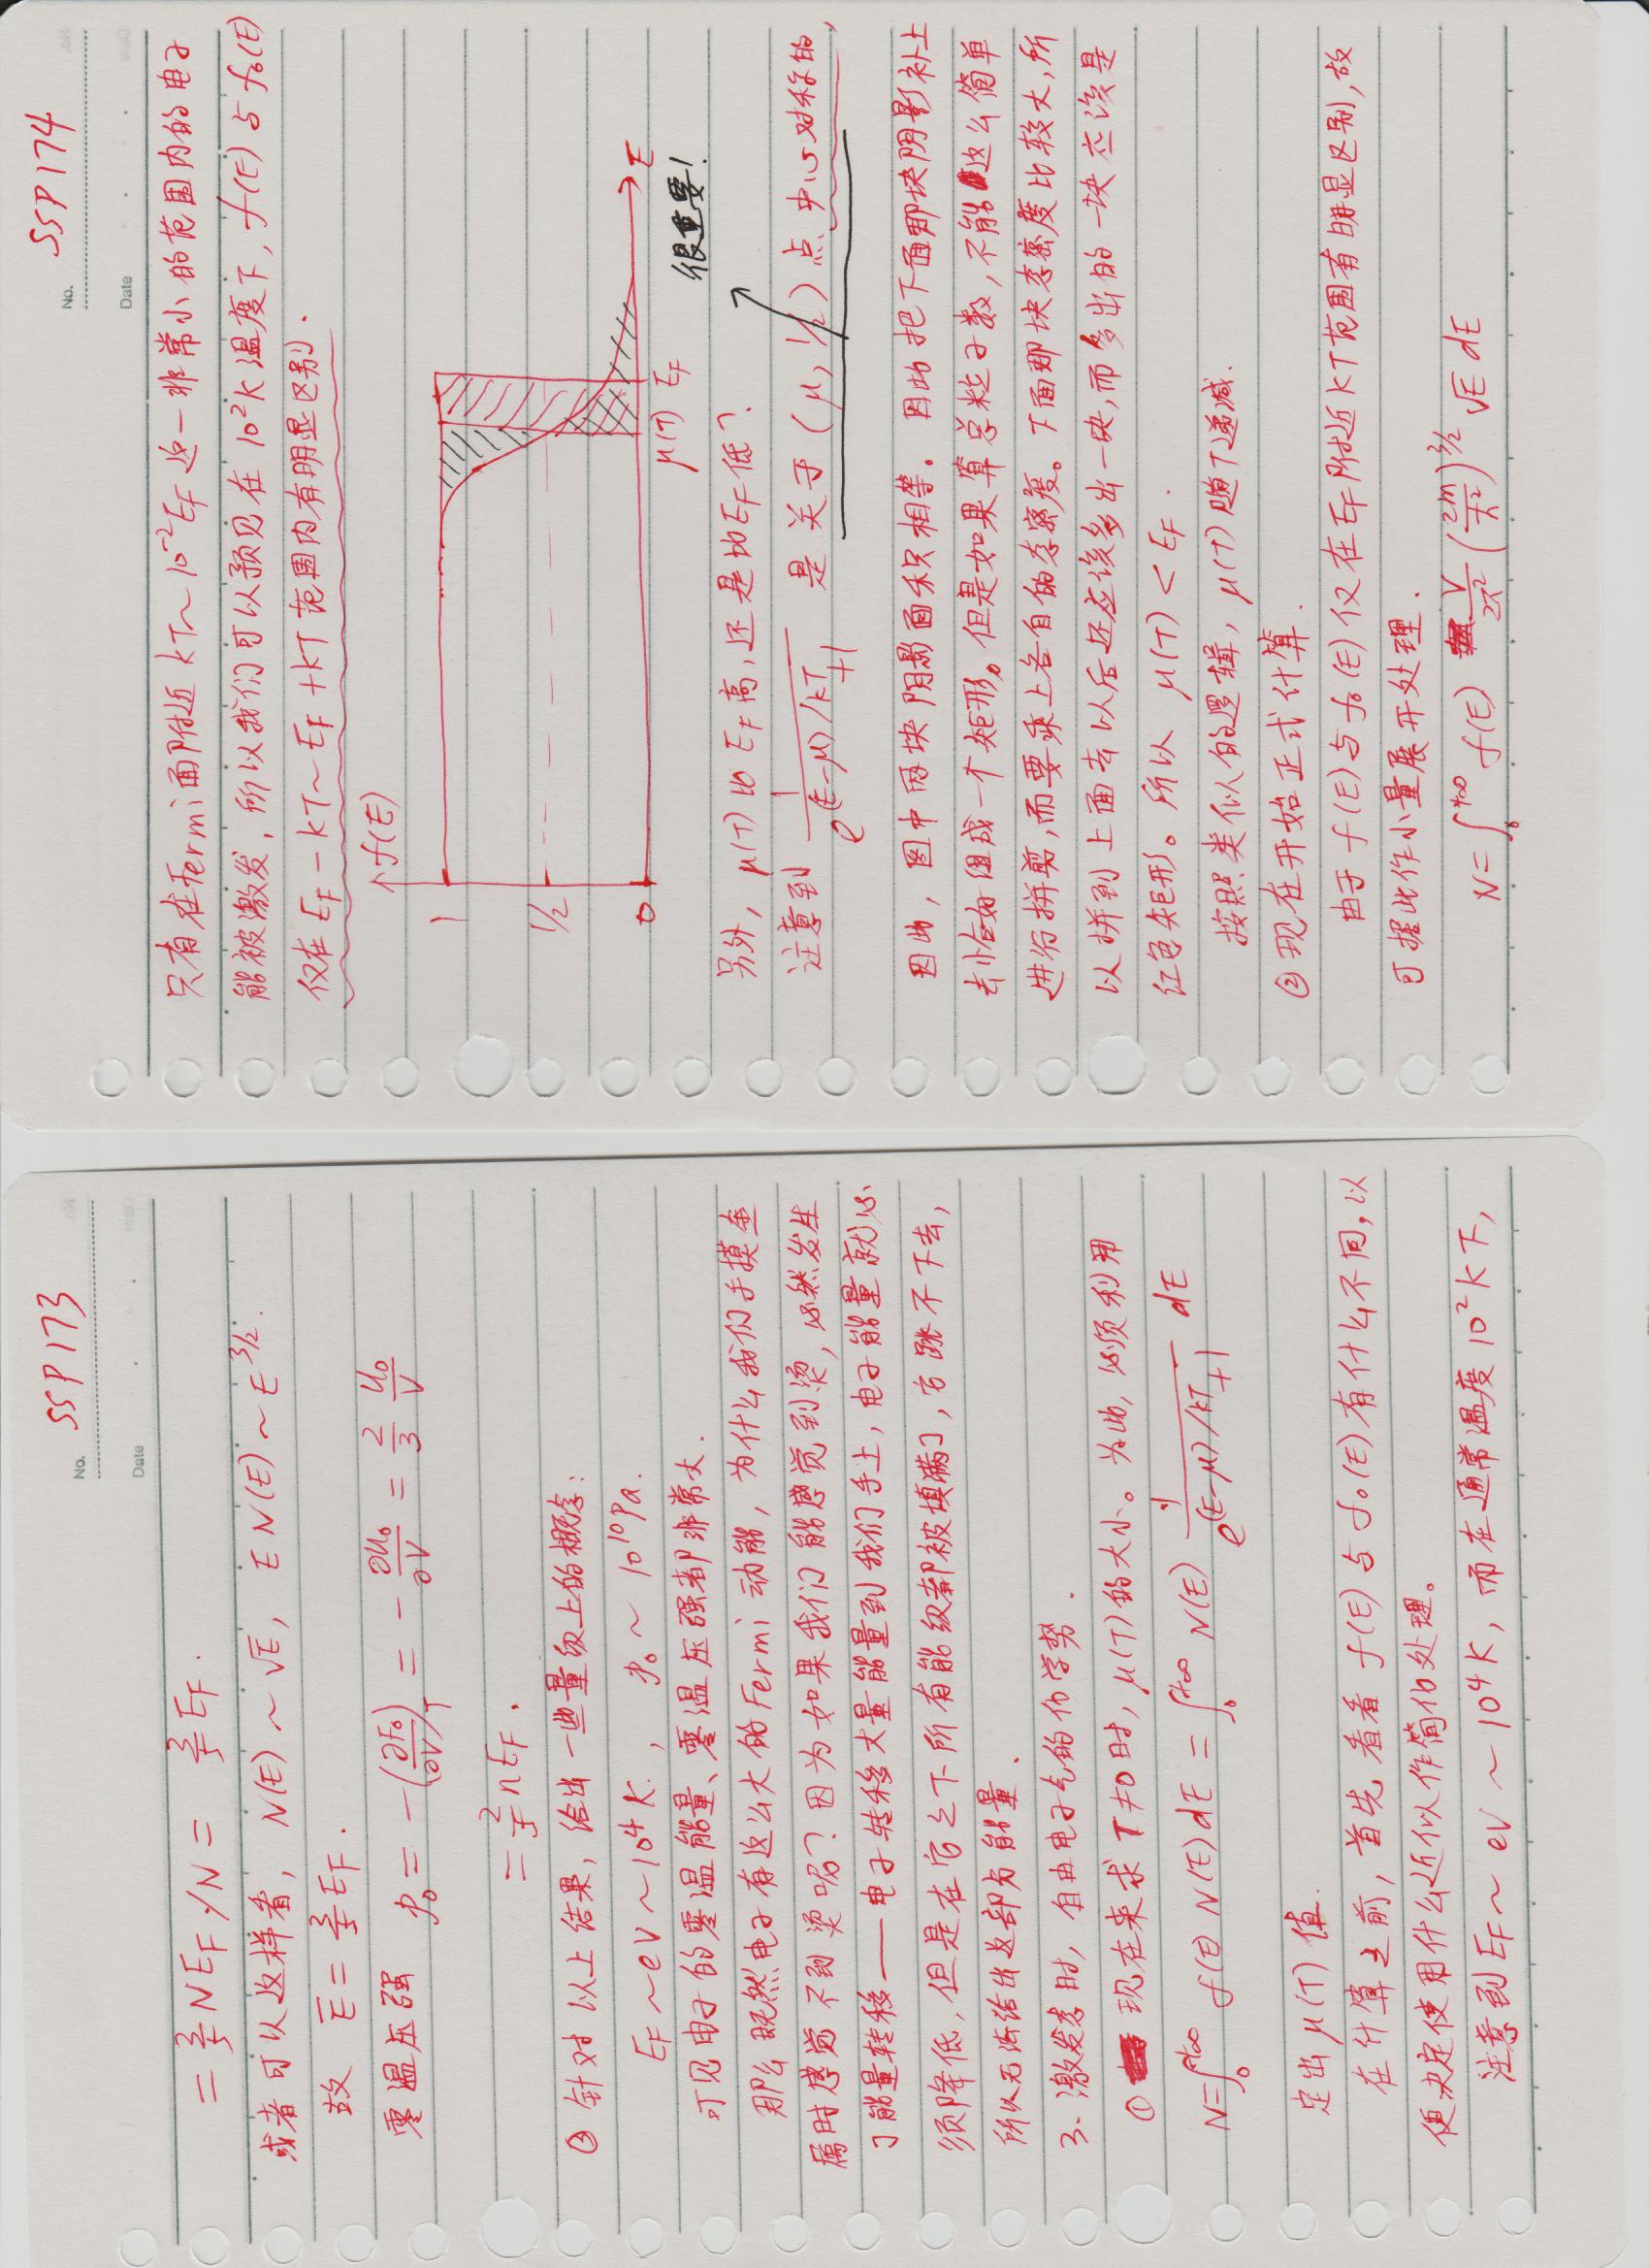 No. SSP173
Date
= 3/5 N E_F / N = 3/5 E_F.
或者可以这样看, N(E) ~ √E, E N(E) ~ E^{3/2}.
故 Ē = 3/5 E_F.
零温压强 p₀ = -(∂F₀/∂V)_T = - ∂U₀/∂V = 2/3 U₀/V
= 2/5 n E_F.
③ 针对以上结果, 给出一些量级上的概念:
E_F ~ eV ~ 10⁴K. , p₀ ~ 10¹⁰Pa.
可见电子的零温能量、零温压强都非常大.
那么既然电子有这么大的Fermi动能, 为什么我们手摸金
属时感觉不到烫呢? 因为如果我们能感觉到烫, 必然发生
了能量转移——电子转移大量能量到我们手上, 电子能量就必
须降低, 但是在它之下所有能级都被填满了, 它跳不下去,
所以无法给出这部分能量.
3. 激发态时, 自由电子气的化学势.
① 现在来求 T≠0时, μ(T)的大小。为此, 必须利用
N=∫₀^{+∞} f(E) N(E) dE = ∫₀^{+∞} N(E) 1/(e^{(E-μ)/kT}+1) dE
定出 μ(T) 值.
在计算之前, 首先看看 f(E) 与 f₀(E) 有什么不同, 以
便决定使用什么近似作简化处理。
注意到 E_F ~ eV ~ 10⁴K, 而在通常温度 10²K下,
No. SSP174
Date
只有在Fermi面附近 kT~10⁻²E_F 这一非常小的范围内的电子
能被激发, 所以我们可以预见在 10²K 温度下, f(E) 与 f₀(E)
仅在 E_F - kT ~ E_F + kT 范围内有明显区别.
f(E)
1
1/2
0
E
μ(T) E_F
很重要!
另外, μ(T) 比 E_F 高, 还是比 E_F 低?
注意到 1/(e^{(E-μ)/kT}+1) 是关于 (μ, 1/2) 点中心对称的,
因此, 图中两块阴影面积相等。因此把下面那块阴影补上
去恰好组成一个矩形。但是如果算总粒子数, 不能这么简单
进行拼剪, 而要乘上各自的态密度。下面那块态密度比较大, 所
以拼到上面去以后还应该多出一块, 而多出的一块应该是
红色矩形。所以 μ(T) < E_F.
按照类似的逻辑, μ(T) 随T递减.
② 现在开始正式计算.
由于 f(E) 与 f₀(E) 仅在 E_F 附近 kT 范围有明显区别, 故
可据此作小量展开处理.
N=∫₀^{+∞} f(E) V/2π² (2m/ħ²)^{3/2} √E dE